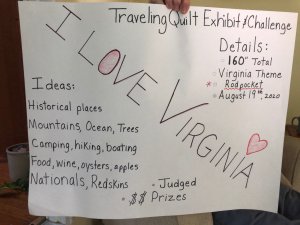 Traveling Quilt Exhibit & Challenge
I LOVE VIRGINIA
Details:
160" Total
Virginia Theme
* Rod pocket
August 19th, 2020
Ideas:
Historical places
Mountains, Ocean, Trees
Camping, hiking, boating
Food, wine, oysters, apples
Nationals, Redskins
Judged
$$ Prizes